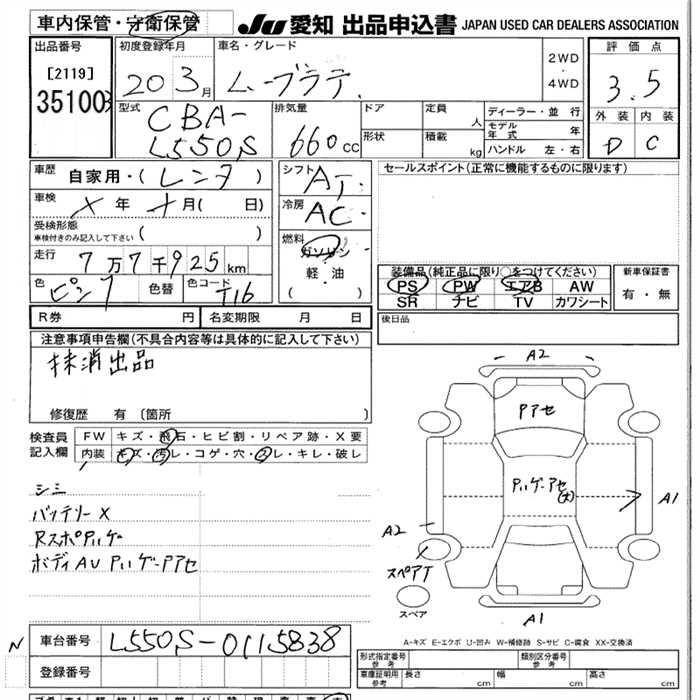 車内保管・守衛保管
JU 愛知 出品申込書 JAPAN USED CAR DEALERS ASSOCIATION
出品番号
[2119]
35100
初度登録年月
20 3月
車名・グレード
ムーブラテ
2WD
・
4WD
評価点
3.5
外装 内装
D C
型式
CBA-
L550S
排気量
660cc
ドア
形状
定員 人
積載 kg
ディーラー・並行
モデル年式 年
ハンドル 左・右
車歴 自家用・(レンタ)
車検 × 年 × 月( 日)
受検形態
車検付きのみ記入して下さい ( )
走行 7万7千925km
色 ピンク 色替 色コード T16
シフト AT
冷房 AC
燃料
ガソリン
・
軽油
( )
セールスポイント(正常に機能するものに限ります)
装備品(純正品に限り○をつけてください)
PS PW エアB AW
SR ナビ TV カワシート
新車保証書
有・無
R券 円 名変期限 月 日
後日品
注意事項申告欄(不具合内容等は具体的に記入して下さい)
抹消出品
修復歴 有 〔箇所 〕
検査員記入欄
FW キズ・飛石・ヒビ割・リペア跡・X要
内装 キズ・汚レ・コゲ・穴・スレ・キレ・破レ
シミ
バッテリーX
RスポPハゲ
ボディAU PハゲーPアセ
A2
Pアセ
Pハゲーアセ
(大)
A1
A2
スペアT
スペア
A1
A-キズ E-エクボ U-凹み W-補修跡 S-サビ C-腐食 XX-交換済
N
車台番号 L550S-0115838
登録番号
形式指定番号 参考
類別区分番号 参考
車庫証明用 参考 長さ cm 幅 cm 高さ cm